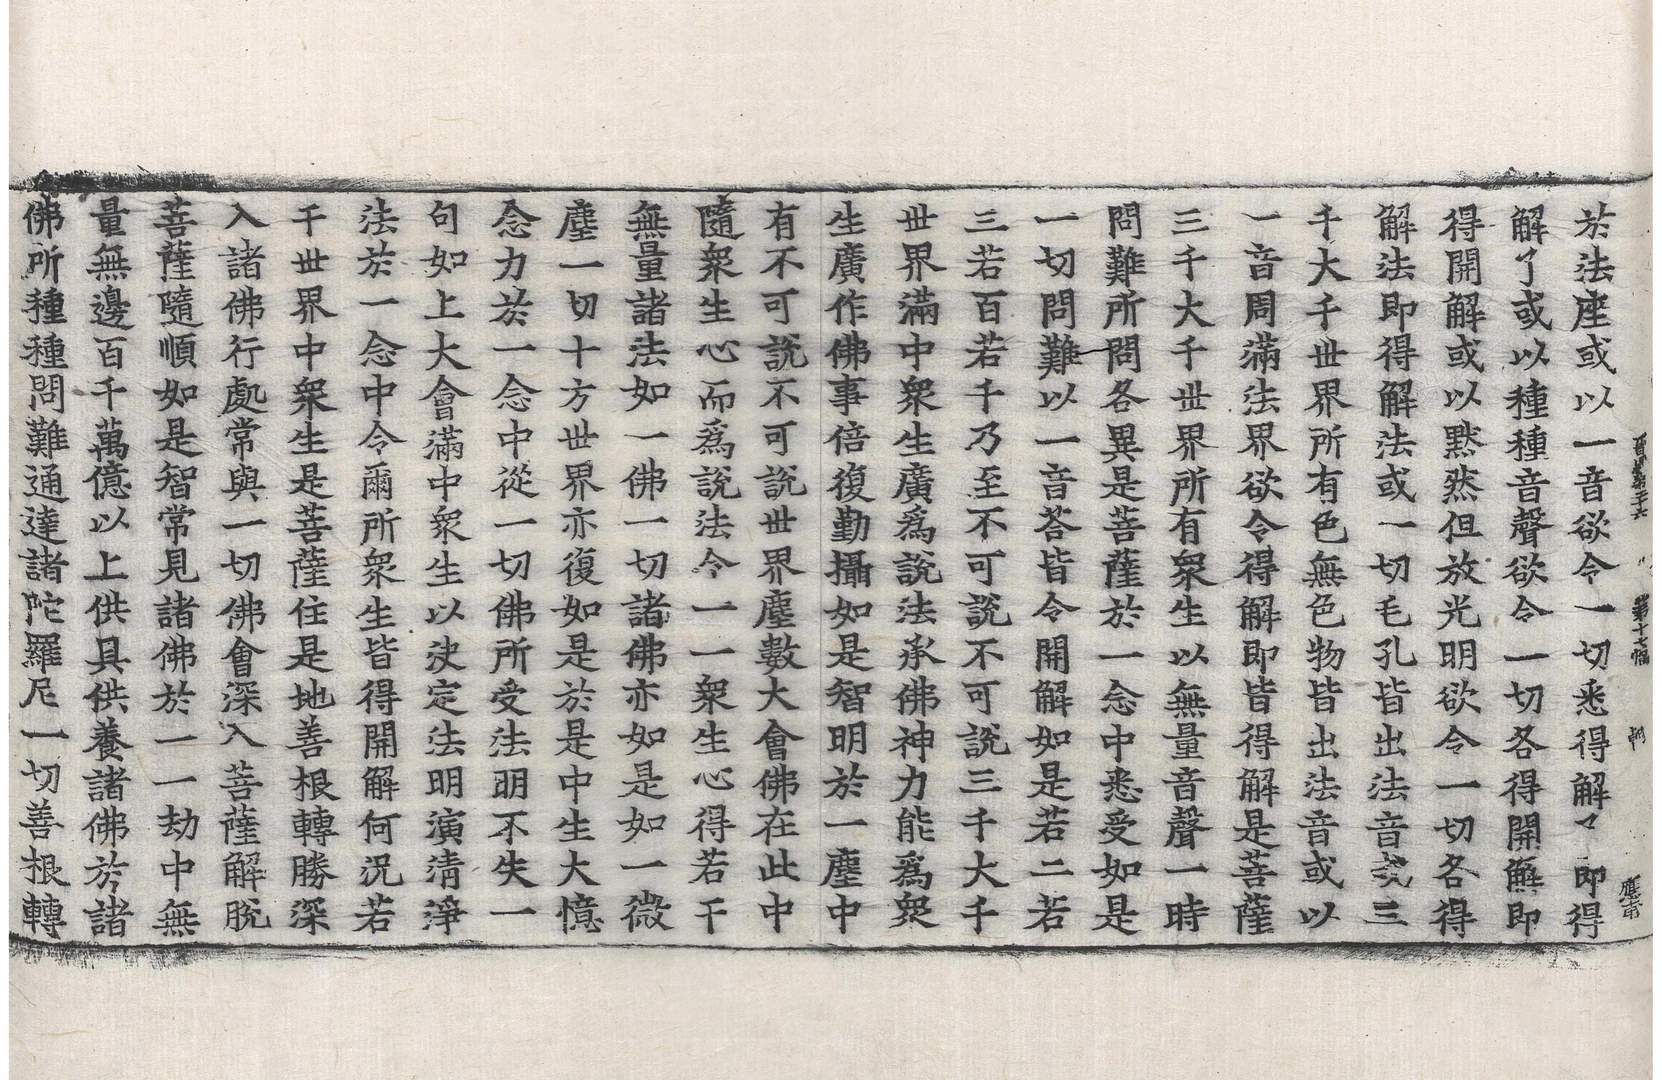 於法座或以一音欲令一切悉得解々即得
解了或以種種音聲欲令一切各得開解即
得開解或以默然但放光明欲令一切各得
解法即得解法或一切毛孔皆出法音或三
千大千世界所有色無色物皆出法音或以
一音周滿法界欲令得解即皆得解是菩薩
三千大千世界所有衆生以無量音聲一時
問難所問各異是菩薩於一念中悉受如是
一切問難以一音荅皆令開解如是若二若
三若百若千乃至不可說不可說三千大千
世界滿中衆生廣爲說法承佛神力能爲衆
生廣作佛事倍復勤攝如是智明於一塵中
有不可說不可說世界塵數大會佛在此中
隨衆生心而爲說法令一一衆生心得若干
無量諸法如一佛一切諸佛亦如是如一微
塵一切十方世界亦復如是於是中生大憶
念力於一念中從一切佛所受法明不失一
句如上大會滿中衆生以決定法明演清淨
法於一念中令爾所衆生皆得開解何況若
干世界中衆生是菩薩住是地善根轉勝深
入諸佛行處常與一切佛會深入菩薩解脫
菩薩隨順如是智常見諸佛於一一劫中無
量無邊百千萬億以上供具供養諸佛於諸
佛所種種問難通達諸陀羅尼一切善根轉